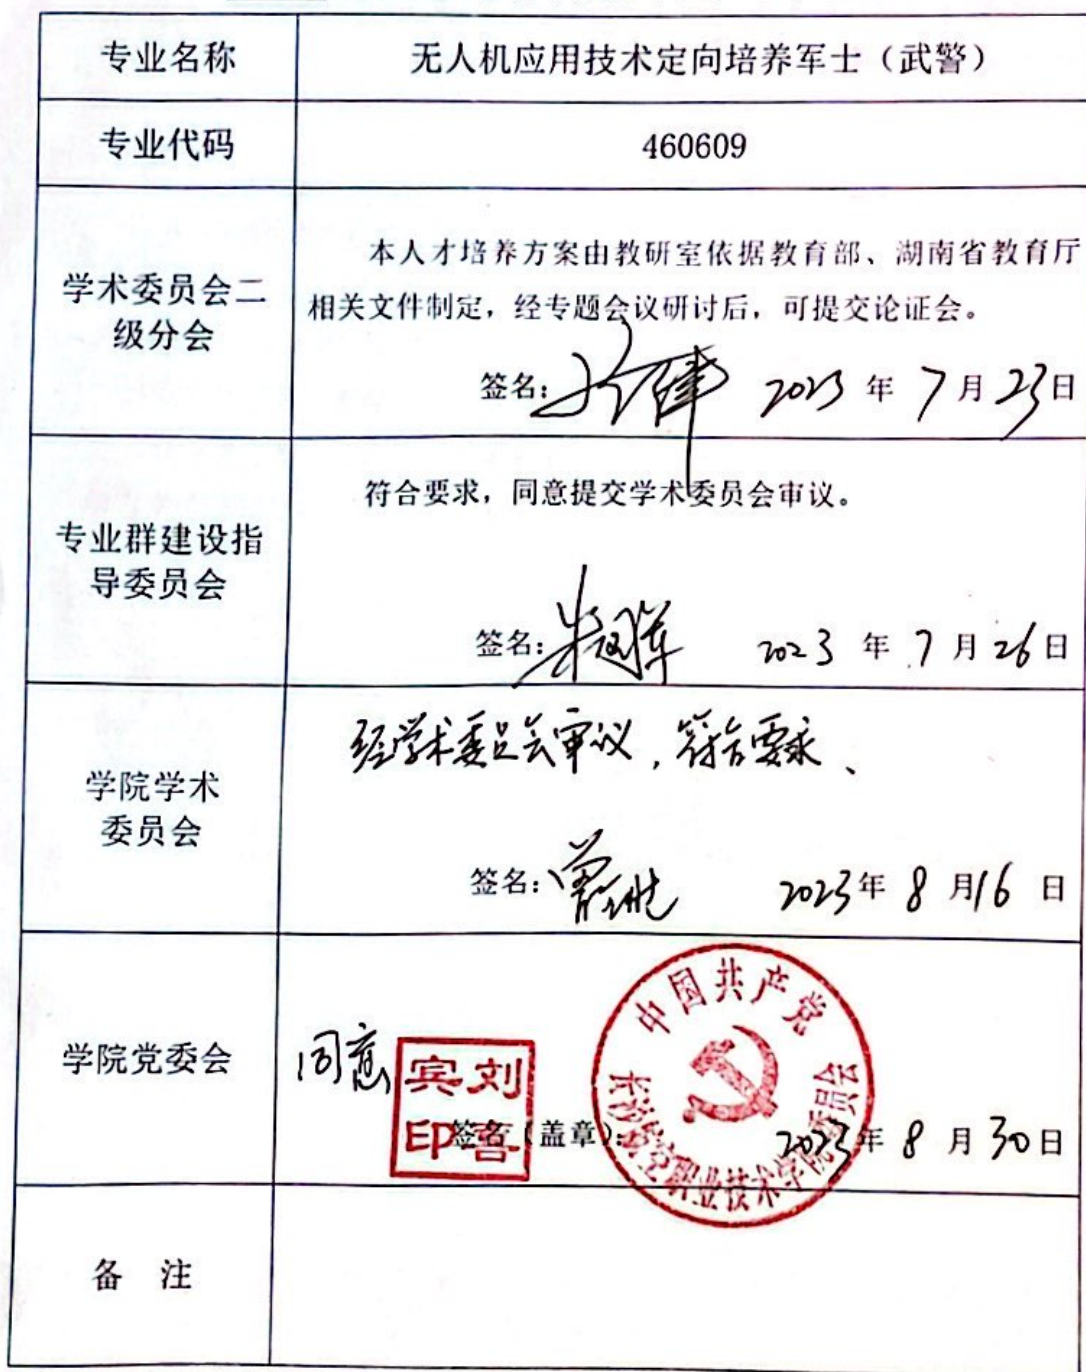 专业名称
无人机应用技术定向培养军士（武警）
专业代码
460609
学术委员会二
级分会
本人才培养方案由教研室依据教育部、湖南省教育厅
相关文件制定，经专题会议研讨后，可提交论证会。
签名： 2023 年 7 月 23 日
专业群建设指
导委员会
符合要求，同意提交学术委员会审议。
签名： 2023 年 7 月 26 日
学院学术
委员会
经学术委员会审议，符合要求、
签名： 2023 年 8 月 16 日
学院党委会
同意
刘喜宾印
签名（盖章）： 2023 年 8 月 30 日
中国共产党
长沙航空职业技术学院委员会
备 注